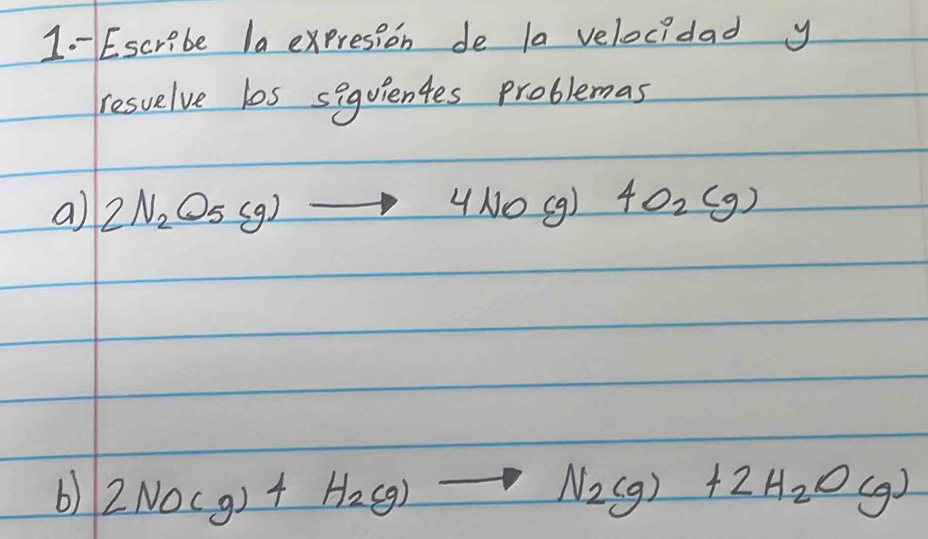 1.- Escribe la expresión de la velocidad y
resuelve los siguientes problemas
a) 2N₂O₅(g) → 4NO(g) + O₂(g)
b) 2NO(g) + H₂(g) → N₂(g) + 2H₂O(g)